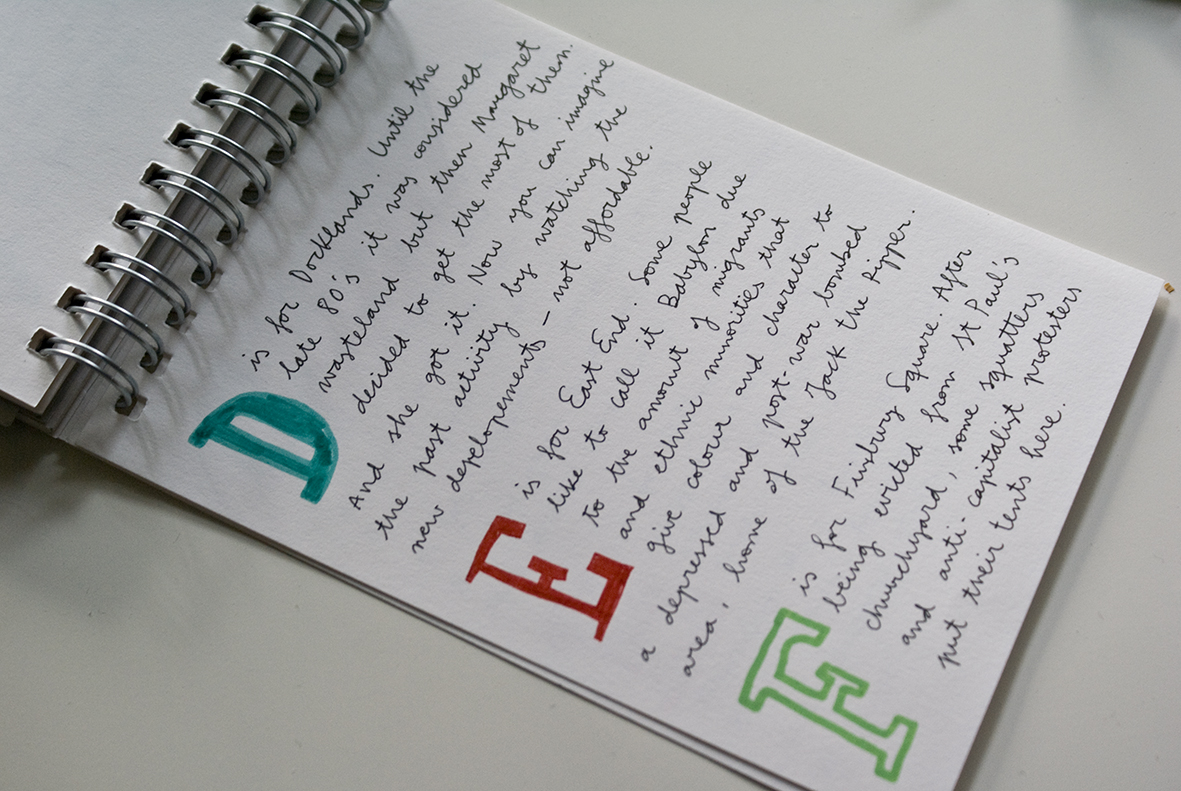 D is for Docklands. Until the
late 80's it was considered
wasteland but then Margaret
decided to get the most of them.
And she got it. Now you can imagine
the past activity by watching the
new developements – not affordable.
E is for East End. Some people
like to call it Babylon due
to the amount of migrants
and ethnic minorities that
give colour and character to
a depressed and post-war bombed
area, home of the Jack the Ripper.
F is for Finsbury Square. After
being evicted from St Paul's
churchyard, some squatters
and anti-capitalist protesters
put their tents here.